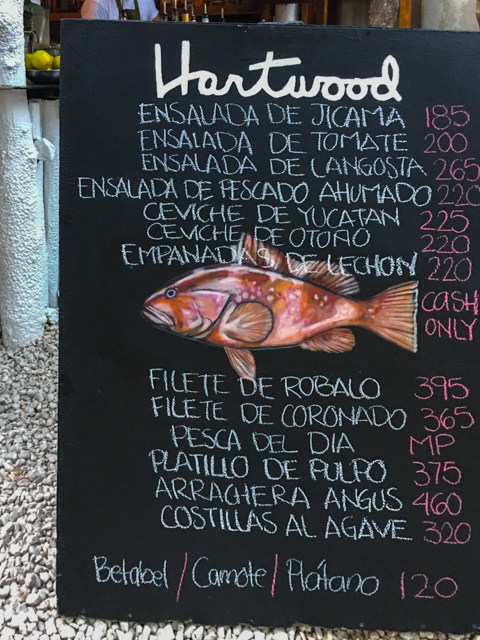 Hartwood
ENSALADA DE JICAMA 185
ENSALADA DE TOMATE 200
ENSALADA DE LANGOSTA 265
ENSALADA DE PESCADO AHUMADO 220
CEVICHE DE YUCATAN 225
CEVICHE DE OTOÑO 220
EMPANADAS DE LECHON 220
CASH
ONLY
FILETE DE ROBALO 395
FILETE DE CORONADO 365
PESCA DEL DIA MP
PLATILLO DE PULPO 375
ARRACHERA ANGUS 460
COSTILLAS AL AGAVE 320
Betabel / Camote / Plátano 120